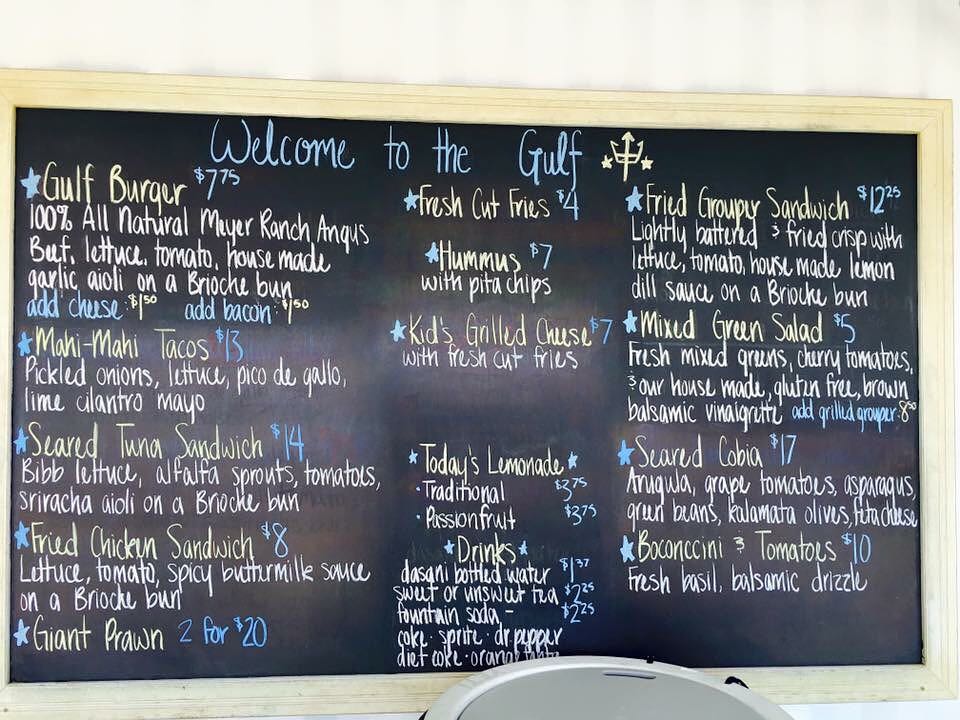 Welcome to the Gulf
Gulf Burger $7.75
100% All Natural Meyer Ranch Angus
Beef, lettuce, tomato, house made
garlic aioli on a Brioche bun
add cheese: $1.50 add bacon: $1.50
Mahi-Mahi Tacos $13
Pickled onions, lettuce, pico de gallo,
lime cilantro mayo
Seared Tuna Sandwich $14
Bibb lettuce, alfalfa sprouts, tomatoes,
sriracha aioli on a Brioche bun
Fried Chicken Sandwich $8
Lettuce, tomato, spicy buttermilk sauce
on a Brioche bun
Giant Prawn 2 for $20
Fresh Cut Fries $4
Hummus $7
with pita chips
Kid's Grilled Cheese $7
with fresh cut fries
Today's Lemonade
· Traditional $3.75
· Passionfruit $3.75
Drinks
dasani bottled water $1.37
sweet or unsweet tea $2.25
fountain soda - $2.25
coke · sprite · dr pepper
diet coke · orange fanta
Fried Grouper Sandwich $12.25
Lightly battered & fried crisp with
lettuce, tomato, house made lemon
dill sauce on a Brioche bun
Mixed Green Salad $5
Fresh mixed greens, cherry tomatoes,
& our house made, gluten free, brown
balsamic vinaigrette add grilled grouper: 8.00
Seared Cobia $17
Arugula, grape tomatoes, asparagus,
green beans, kalamata olives, feta cheese
Boconccini & Tomatoes $10
Fresh basil, balsamic drizzle